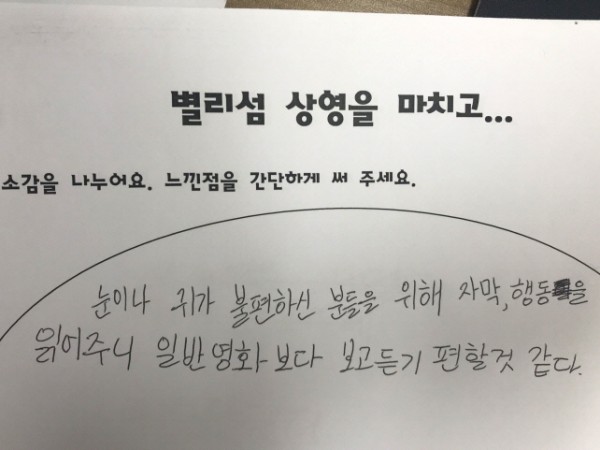 별리섬 상영을 마치고...
소감을 나누어요. 느낀점을 간단하게 써 주세요.
눈이나 귀가 불편하신 분들을 위해 자막, 행동을
읽어주니 일반영화 보다 보고듣기 편할것 같다.